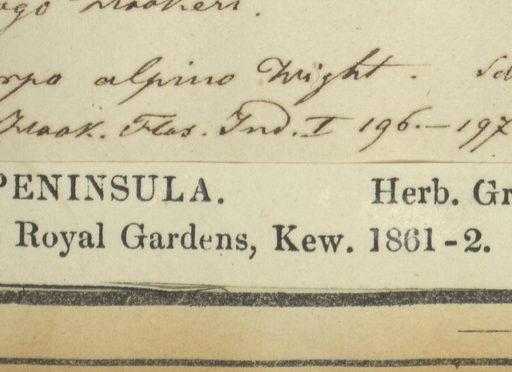 ago Hookeri.
rpo alpino Wight.
Hook. Flor. Ind. I 196.—197
PENINSULA. Herb. Gr
Royal Gardens, Kew. 1861-2.